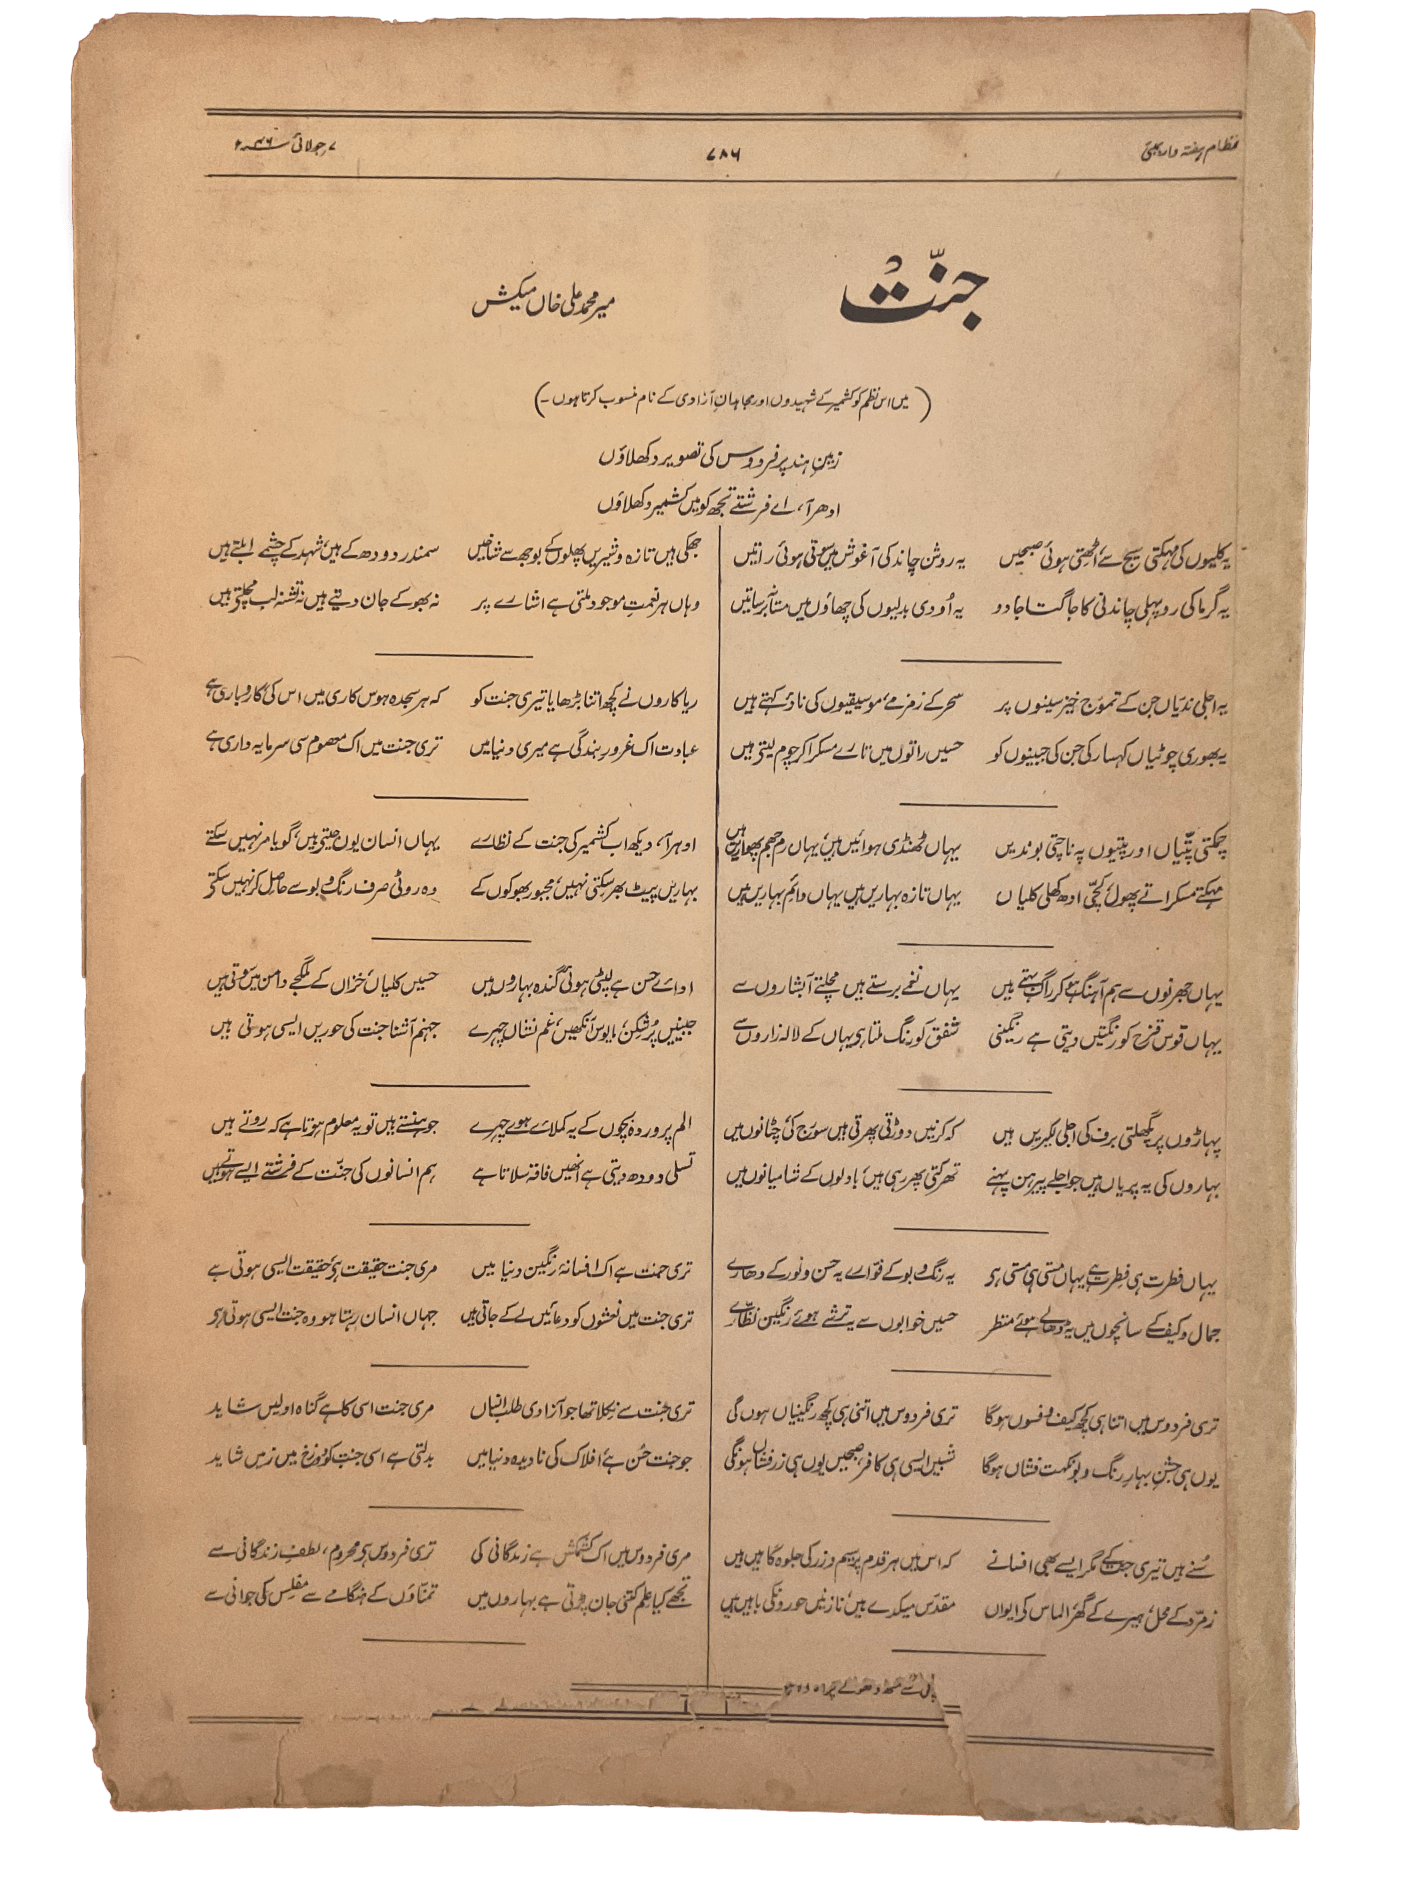 نظام ہفتہ وار بمبئی
۷۸۶
۷ جولائی ۴۶ء
جنّت
میر محمد علی خاں میکش
(میں اس نظم کو کشمیر کے شہیدوں اور مجاہدانِ آزادی کے نام منسوب کرتا ہوں۔)
زمینِ ہند پر فردوس کی تصویر دکھلاؤں
ادھر آ، اے فرشتے تجھ کو میں کشمیر دکھلاؤں
یہ کلیوں کی مہکتی سیج سے اٹھتی ہوئی صبحیں یہ روشن چاند کی آغوش میں سوتی ہوئی راتیں
یہ گرما کی روپہلی چاندنی کا جاگتا جادو یہ اُودی بدلیوں کی چھاؤں میں مستانہ برساتیں
یہ اجلی ندیاں جن کے تموّج خیز سینوں پر سحر کے زمزمے، موسیقیوں کی ناؤ کھیتے ہیں
یہ بھوری چوٹیاں کہسار کی جن کی جبینوں کو حسیں راتوں میں تارے مسکرا کر چوم لیتے ہیں
چمکتی پتّیاں اور پتیوں پہ ناچتی بوندیں یہاں ٹھنڈی ہوائیں ہیں، یہاں رم جھم پھواریں ہیں
مہکتے مسکراتے پھول، کچّی ادھ کھلی کلیاں یہاں تازہ بہاریں ہیں یہاں دائم بہاریں ہیں
یہاں جھرنوں سے ہم آہنگ ہو کر راگ بہتے ہیں یہاں نغمے برستے ہیں مچلتے آبشاروں سے
یہاں قوس قزح کو رنگتیں دیتی ہے رنگینی شفق کو رنگ ملتا ہی یہاں کے لالہ زاروں سے
پہاڑوں پر پگھلتی برف کی اجلی لکیریں ہیں کہ کرنیں دوڑتی پھرتی ہیں سورج کی چٹانوں میں
بہاروں کی یہ پریاں ہیں جو اجلے پیرہن پہنے تھرکتی پھر رہی ہیں، بادلوں کے شامیانوں میں
یہاں فطرت ہی فطرت ہے یہاں مستی ہی مستی ہی یہ رنگ و بو کے فوارے یہ حسن و نور کے دھارے
جمال و کیف کے سانچوں میں یہ ڈھالے ہوئے منظر حسیں خوابوں سے یہ ترشے ہوئے رنگین نظّارے
تری فردوس میں اتنا ہی کچھ کیف و فسوں ہوگا تری فردوس میں اتنی ہی کچھ رنگینیاں ہوں گی
یوں ہی جشنِ بہارِ رنگ و بو نکہت فشاں ہوگا شبیں ایسی ہی کافر، صبحیں یوں ہی زر فشاں ہونگی
سُنے ہیں تیری جنت کے مگر ایسے بھی افسانے کہ اس میں ہر قدم پر سیم و زر کی جلوہ گاہیں ہیں
زمرّد کے محل، ہیرے کے گھر، الماس کے ایواں مقدّس میکدے ہیں، نازنیں حوروں کی باہیں ہیں
جھکی ہیں تازہ و شیریں پھلوں کے بوجھ سے شاخیں سمندر دودھ کے ہیں، شہد کے چشمے ابلتے ہیں
وہاں ہر نعمتِ موجود ملتی ہے اشارے پر نہ بھوکے جان دیتے ہیں نہ تشنہ لب مچلتے ہیں
ریاکاروں نے کچھ اتنا بڑھایا تیری جنت کو کہ ہر سجدہ ہوس کاری میں اس کی کاروباری ہے
عبادت اک غرورِ بندگی ہے میری دنیا میں تری جنت میں اک معصوم سی سرمایہ داری ہے
اِدھر آ، دیکھ اب کشمیر کی جنت کے نظارے یہاں انسان یوں جیتے ہیں، گویا مر نہیں سکتے
بہاریں پیٹ بھر سکتی نہیں، مجبور بھوکوں کے وہ روٹی صرف رنگ و بو سے حاصل کر نہیں سکتے
ادائے حسن ہے لپٹی ہوئی گندہ بہاروں میں حسیں کلیاں، خزاں کے ملگجے دامن میں سوتی ہیں
جبینیں پُر شکن، مایوس آنکھیں، غم نشاں چہرے جہنم آشنا جنت کی حوریں ایسی ہوتی ہیں
الم پروردہ بچّوں کے یہ کملائے ہوئے چہرے جو ہنستے ہیں تو یہ معلوم ہوتا ہے کہ روتے ہیں
تسلی دودھ دیتی ہے انھیں فاقہ سلاتا ہے ہم انسانوں کی جنّت کے فرشتے ایسے ہوتے ہیں
تری جنت ہے اک افسانۂ رنگین دنیا میں مری جنت حقیقت ہی، حقیقت ایسی ہوتی ہے
تری جنت میں نعشوں کو دعائیں لے کے جاتی ہیں جہاں انسان رہتا ہو وہ جنت ایسی ہوتی ہی
تری جنت سے نکلا تھا جو آزادی طلب انساں مری جنت اسی کا ہے گناہ اولیں شاید
جو جنت حُسن ہے، افلاک کی نادیدہ دنیا میں بدلتی ہے اسی جنت کو دوزخ میں زمیں شاید
مری فردوس میں اک کشمکش ہے زندگانی کی تری فردوس ہی محروم، لطفِ زندگانی سے
تجھے کیا علم کتنی جان پڑتی ہے بہاروں میں تمنّاؤں کے ہنگامے سے مفلس کی جوانی سے